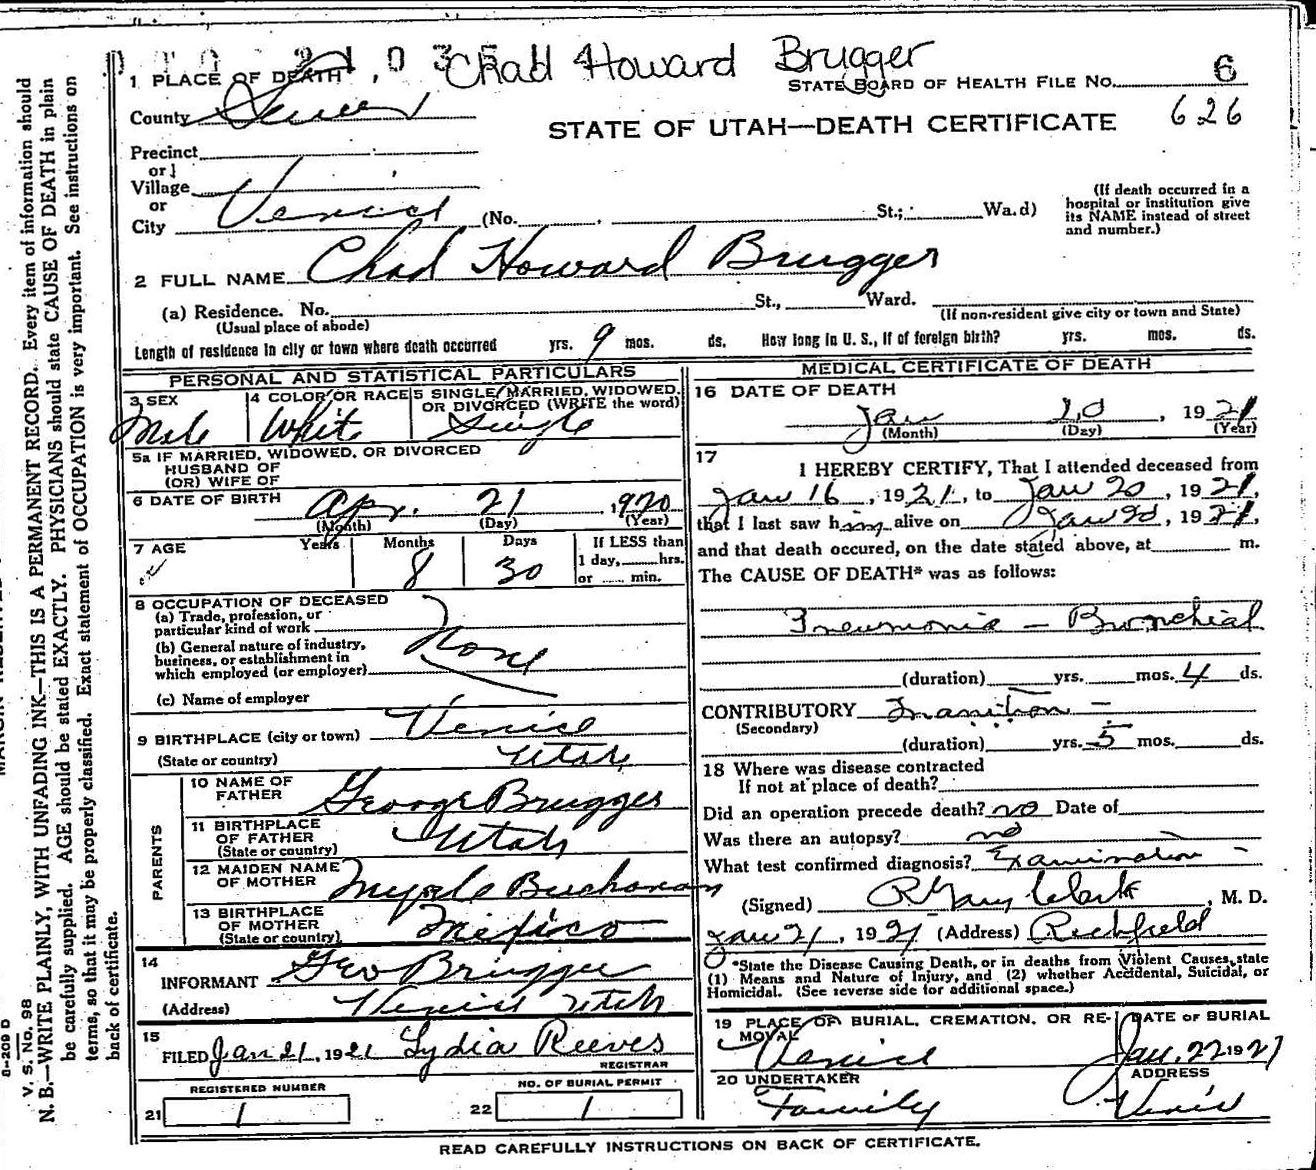 Chad Howard Brugger
1 PLACE OF DEATH
STATE BOARD OF HEALTH FILE No. 6
County Sevier
626
STATE OF UTAH—DEATH CERTIFICATE
Precinct
or
Village
or
City Venice (No. St.; Wa.d)
(If death occurred in a
hospital or institution give
its NAME instead of street
and number.)
2 FULL NAME Chad Howard Brugger
(a) Residence. No. St., Ward.
(Usual place of abode)
(If non-resident give city or town and State)
Length of residence in city or town where death occurred yrs. 9 mos. ds. How long in U. S., if of foreign birth? yrs. mos. ds.
PERSONAL AND STATISTICAL PARTICULARS
3 SEX
Male
4 COLOR OR RACE
White
5 SINGLE, MARRIED, WIDOWED,
OR DIVORCED (WRITE the word)
Single
5a IF MARRIED, WIDOWED, OR DIVORCED
HUSBAND OF
(OR) WIFE OF
6 DATE OF BIRTH Apr. 21, 1920
(Month) (Day) (Year)
7 AGE Years Months Days If LESS than
8 30 1 day, hrs.
or min.
8 OCCUPATION OF DECEASED
(a) Trade, profession, or
particular kind of work
(b) General nature of industry,
business, or establishment in
which employed (or employer)
None
(c) Name of employer
9 BIRTHPLACE (city or town) Venice
(State or country) Utah
PARENTS
10 NAME OF
FATHER George Brugger
11 BIRTHPLACE
OF FATHER
(State or country) Utah
12 MAIDEN NAME
OF MOTHER Myrle Buchanan
13 BIRTHPLACE
OF MOTHER
(State or country) Mexico
14
INFORMANT Geo Brugger
(Address) Venice Utah
15
FILED Jan 21, 1921 Lydia Reeves
REGISTRAR
REGISTERED NUMBER
21 1
NO. OF BURIAL PERMIT
22 1
MEDICAL CERTIFICATE OF DEATH
16 DATE OF DEATH
Jan 20, 1921
(Month) (Day) (Year)
17
I HEREBY CERTIFY, That I attended deceased from
Jan 16, 1921, to Jan 20, 1921,
that I last saw him alive on Jan 20, 1921,
and that death occured, on the date stated above, at m.
The CAUSE OF DEATH* was as follows:
Pneumonia - Bronchial
(duration) yrs. mos. 4 ds.
CONTRIBUTORY Inanition -
(Secondary)
(duration) yrs. 5 mos. ds.
18 Where was disease contracted
If not at place of death?
Did an operation precede death? no Date of
Was there an autopsy? no
What test confirmed diagnosis? Examination -
(Signed) R Gary Clark, M. D.
Jan 21, 1921 (Address) Richfield
*State the Disease Causing Death, or in deaths from Violent Causes, state
(1) Means and Nature of Injury, and (2) whether Accidental, Suicidal, or
Homicidal. (See reverse side for additional space.)
19 PLACE OF BURIAL, CREMATION, OR RE-
MOVAL
Venice
DATE OF BURIAL
Jan. 22 1921
20 UNDERTAKER
Family
ADDRESS
Venice
READ CAREFULLY INSTRUCTIONS ON BACK OF CERTIFICATE.
V. S. No. 98
N. B.—WRITE PLAINLY, WITH UNFADING INK—THIS IS A PERMANENT RECORD. Every item of information should
be carefully supplied. AGE should be stated EXACTLY. PHYSICIANS should state CAUSE OF DEATH in plain
terms, so that it may be properly classified. Exact statement of OCCUPATION is very important. See instructions on
back of certificate.